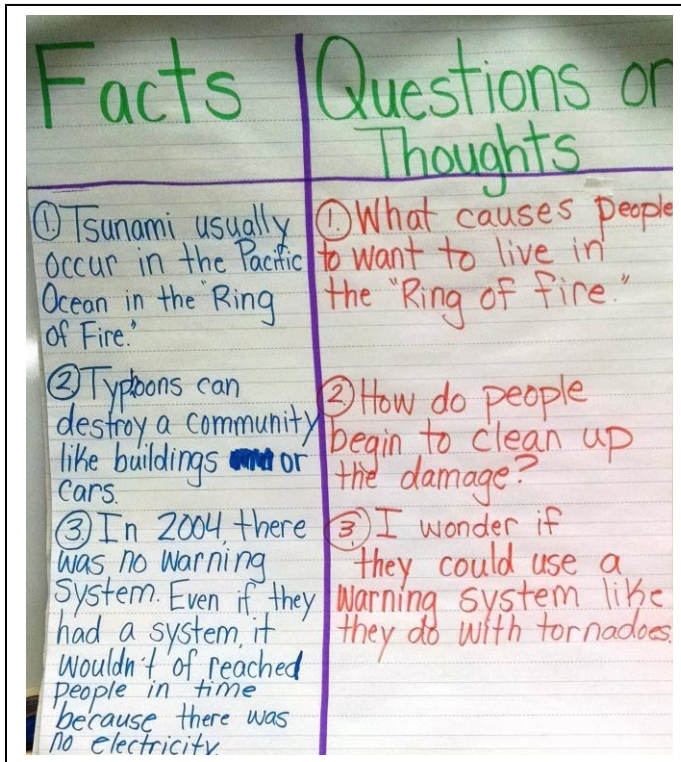 Facts
Questions or
Thoughts
① Tsunami usually
occur in the Pacific
Ocean in the "Ring
of Fire."
② Typhoons can
destroy a community
like buildings or
cars.
③ In 2004, there
was no warning
system. Even if they
had a system, it
wouldn't of reached
people in time
because there was
no electricity.
① What causes people
to want to live in
the "Ring of fire."
② How do people
begin to clean up
the damage?
③ I wonder if
they could use a
warning system like
they do with tornadoes.